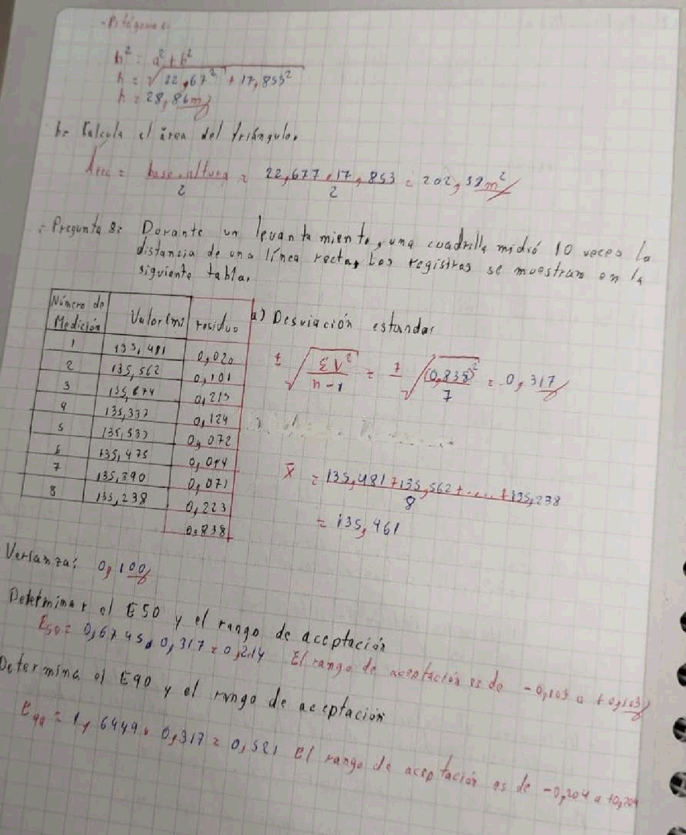 - Pitágoras:
h² = a² + b²
h = √22,67² + 17,853²
h = 28,86m
b- Calcula el área del triángulo.
Área = base . altura / 2 = 22,677 . 17,853 / 2 = 202,38 m²
: Pregunta 8: Dorante un levantamiento, una cuadrilla midió 10 veces la
distancia de una línea recta, Los registros se muestran en la
siguiente tabla.
Número de Medición Valor (m) residuo
1 135,481 0,020
2 135,562 0,101
3 135,674 0,213
4 135,337 0,124
5 135,533 0,072
6 135,475 0,014
7 135,390 0,071
8 135,238 0,223
0,838
a) Desviación estandar
± √ΣV² / n-1 = ± √(0,838)² / 7 = 0,317
x̄ = 135,481 + 135,562 + ..... + 135,238 / 8
= 135,461
Varianza: 0,100
Determinar el E50 y el rango de aceptación
E50 = 0,6745 . 0,317 = 0,214 El rango de aceptación es de -0,103 a +0,103
Determina el E90 y el rango de aceptación
= 1,6449 . 0,317 = 0,521 El rango de aceptación es de -0,204 a +0,204